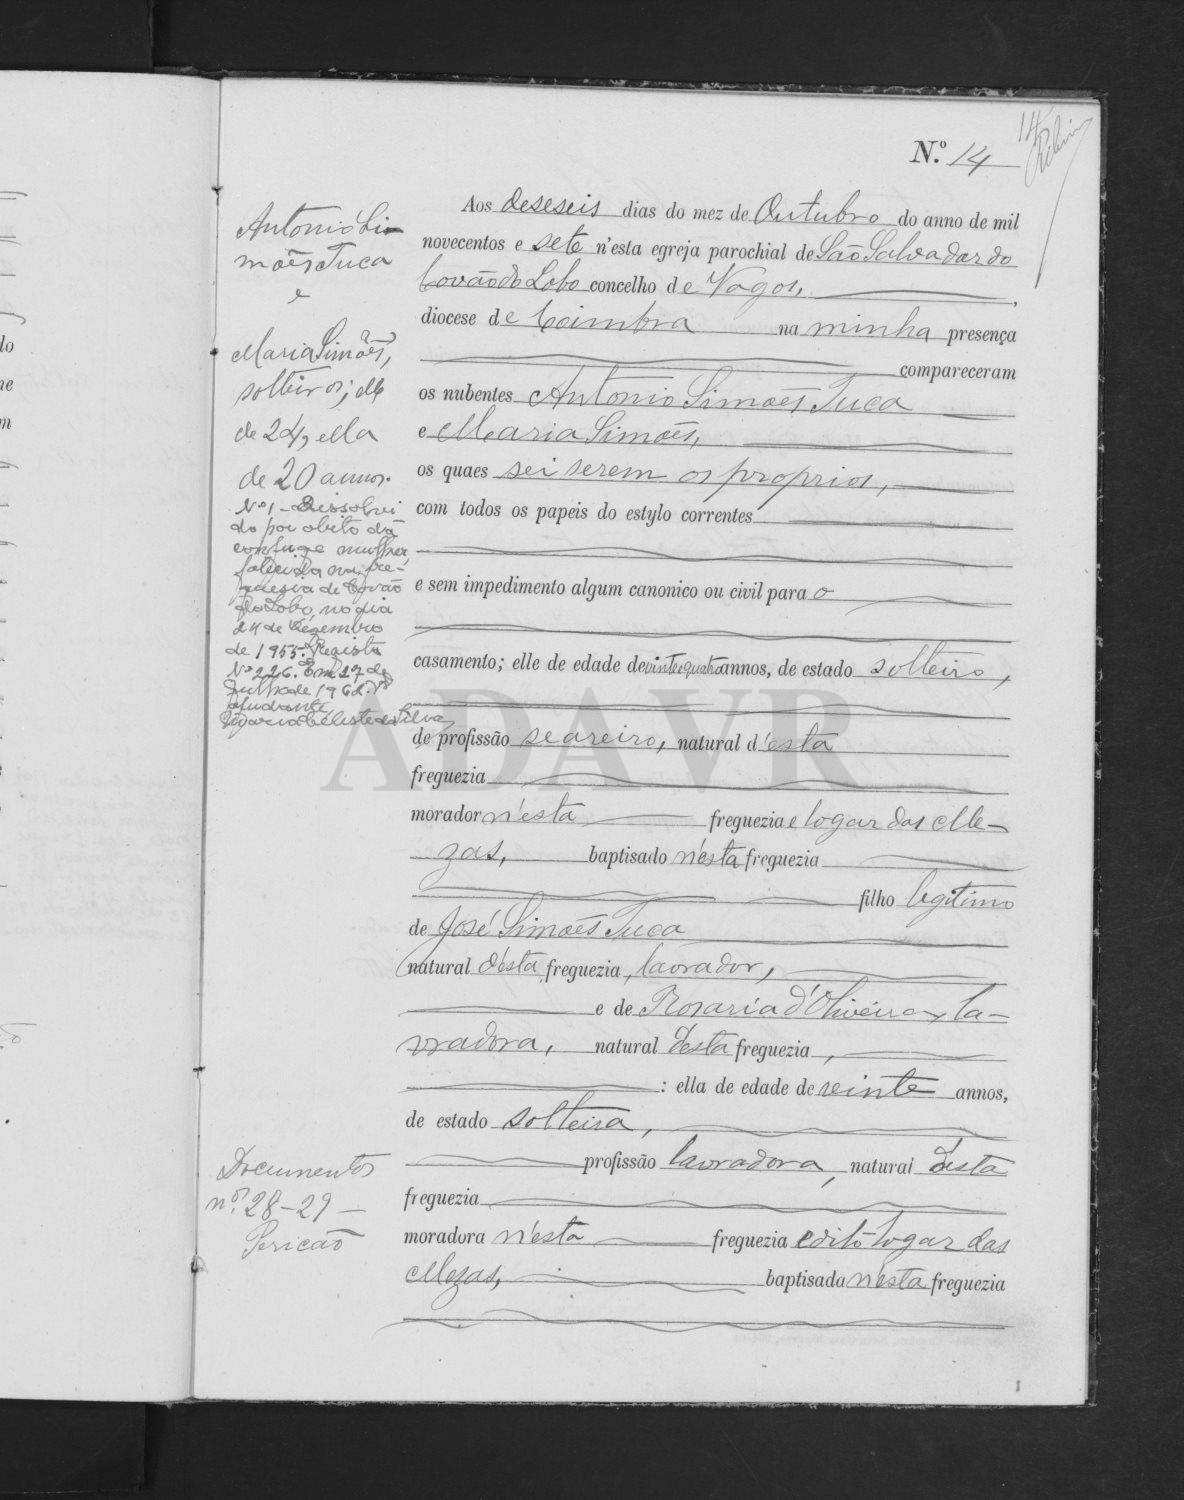 14
Ribeiro
N.º 14
Antonio Si-
mões Tuca
e
Maria Simões,
solteiros; elle
de 24, ella
de 20 annos.
Nº 1 - Dissolvi
do por obito da
conjuge mulher,
falecida na fre-
guesia de Covão
do Lobo, no dia
24 de Dezembro
de 1955. Registo
Nº 226. Em 27 de
Julho de 1962.
ajudante
Maria Celeste da Silva
Documentos
nos. 28-29 -
Sericão
Aos deseseis dias do mez de Outubro do anno de mil
novecentos e sete n'esta egreja parochial de São Salvador do
Covão do Lobo concelho de Vagos,
diocese de Coimbra na minha presença
compareceram
os nubentes Antonio Simões Tuca
e Maria Simões,
os quaes sei serem os proprios,
com todos os papeis do estylo correntes
e sem impedimento algum canonico ou civil para o
casamento; elle de edade de vinte e quatro annos, de estado solteiro,
de profissão seareiro, natural d'esta
freguezia
morador n'esta freguezia e logar das Me-
zas, baptisado n'esta freguezia
filho legitimo
de José Simões Tuca
natural d'esta freguezia, lavrador,
e de Rosaria d'Oliveira, la-
vradora, natural desta freguezia,
: ella de edade de vinte annos,
de estado solteira,
profissão lavradora, natural desta
freguezia
moradora n'esta freguezia e dito logar das
Mezas, baptisada n'esta freguezia
ADAVR